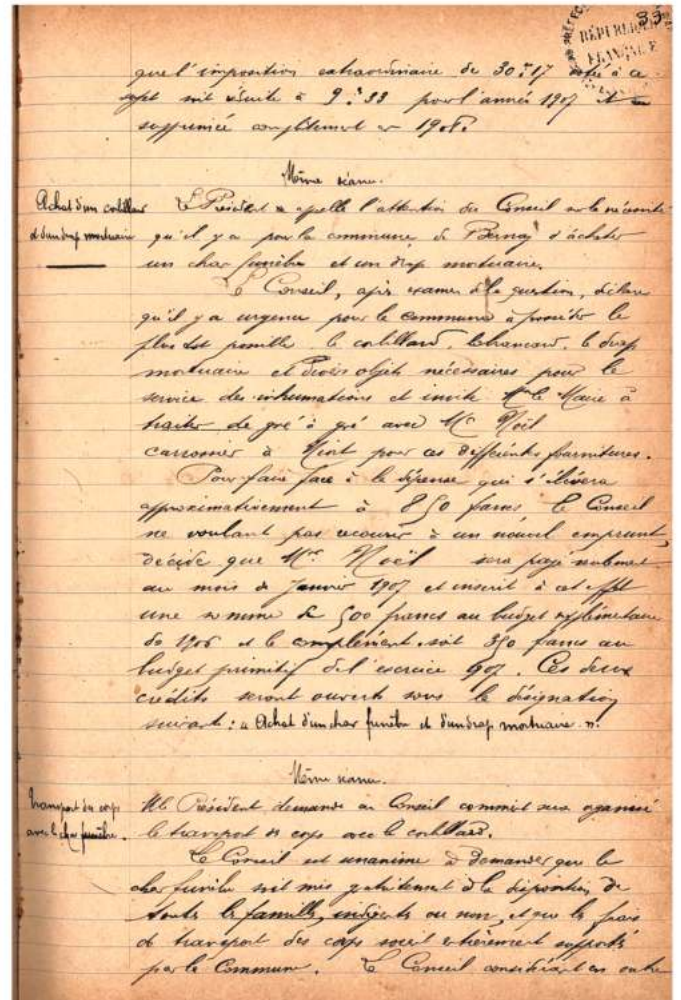 33
RÉPUBLIQUE
FRANÇAISE
que l'imposition extraordinaire de 30.17 votée à ce
sujet soit réduite à 9.33 pour l'année 1907 et
supprimée complètement en 1908.
Même séance.
Achat d'un corbillard
et d'un drap mortuaire
Le Président appelle l'attention du Conseil sur la nécessité
qu'il y a pour la commune de Bernay d'acheter
un char funèbre et un drap mortuaire.
Le Conseil, après examen de la question, déclare
qu'il y a urgence pour la commune à procéder le
plus tôt possible le corbillard, le brancard, le drap
mortuaire et divers objets nécessaires pour le
service des inhumations et invite Mr le Maire à
traiter de gré à gré avec Mr Noël
carrossier à Niort pour ces différentes fournitures.
Pour faire face à la dépense qui s'élèvera
approximativement à 850 francs le Conseil
ne voulant pas recourir à un nouvel emprunt,
décide que Mr Noël sera payé seulement
au mois de Janvier 1907 et inscrit à cet effet
une somme de 500 francs au budget supplémentaire
de 1906 et le complément soit 350 francs au
budget primitif de l'exercice 907. Ces deux
crédits seront ouverts sous la désignation
suivante : « Achat d'un char funèbre et d'un drap mortuaire ».
Même séance.
Transport des corps
avec le char funèbre.
Mr le Président demande au Conseil comment sera organisé
le transport des corps avec le corbillard.
Le Conseil est unanime à demander que le
char funèbre soit mis gratuitement à la disposition de
toutes les familles, indigentes ou non, et que les frais
de transport des corps soient entièrement supportés
par la Commune. Le Conseil considérant en outre